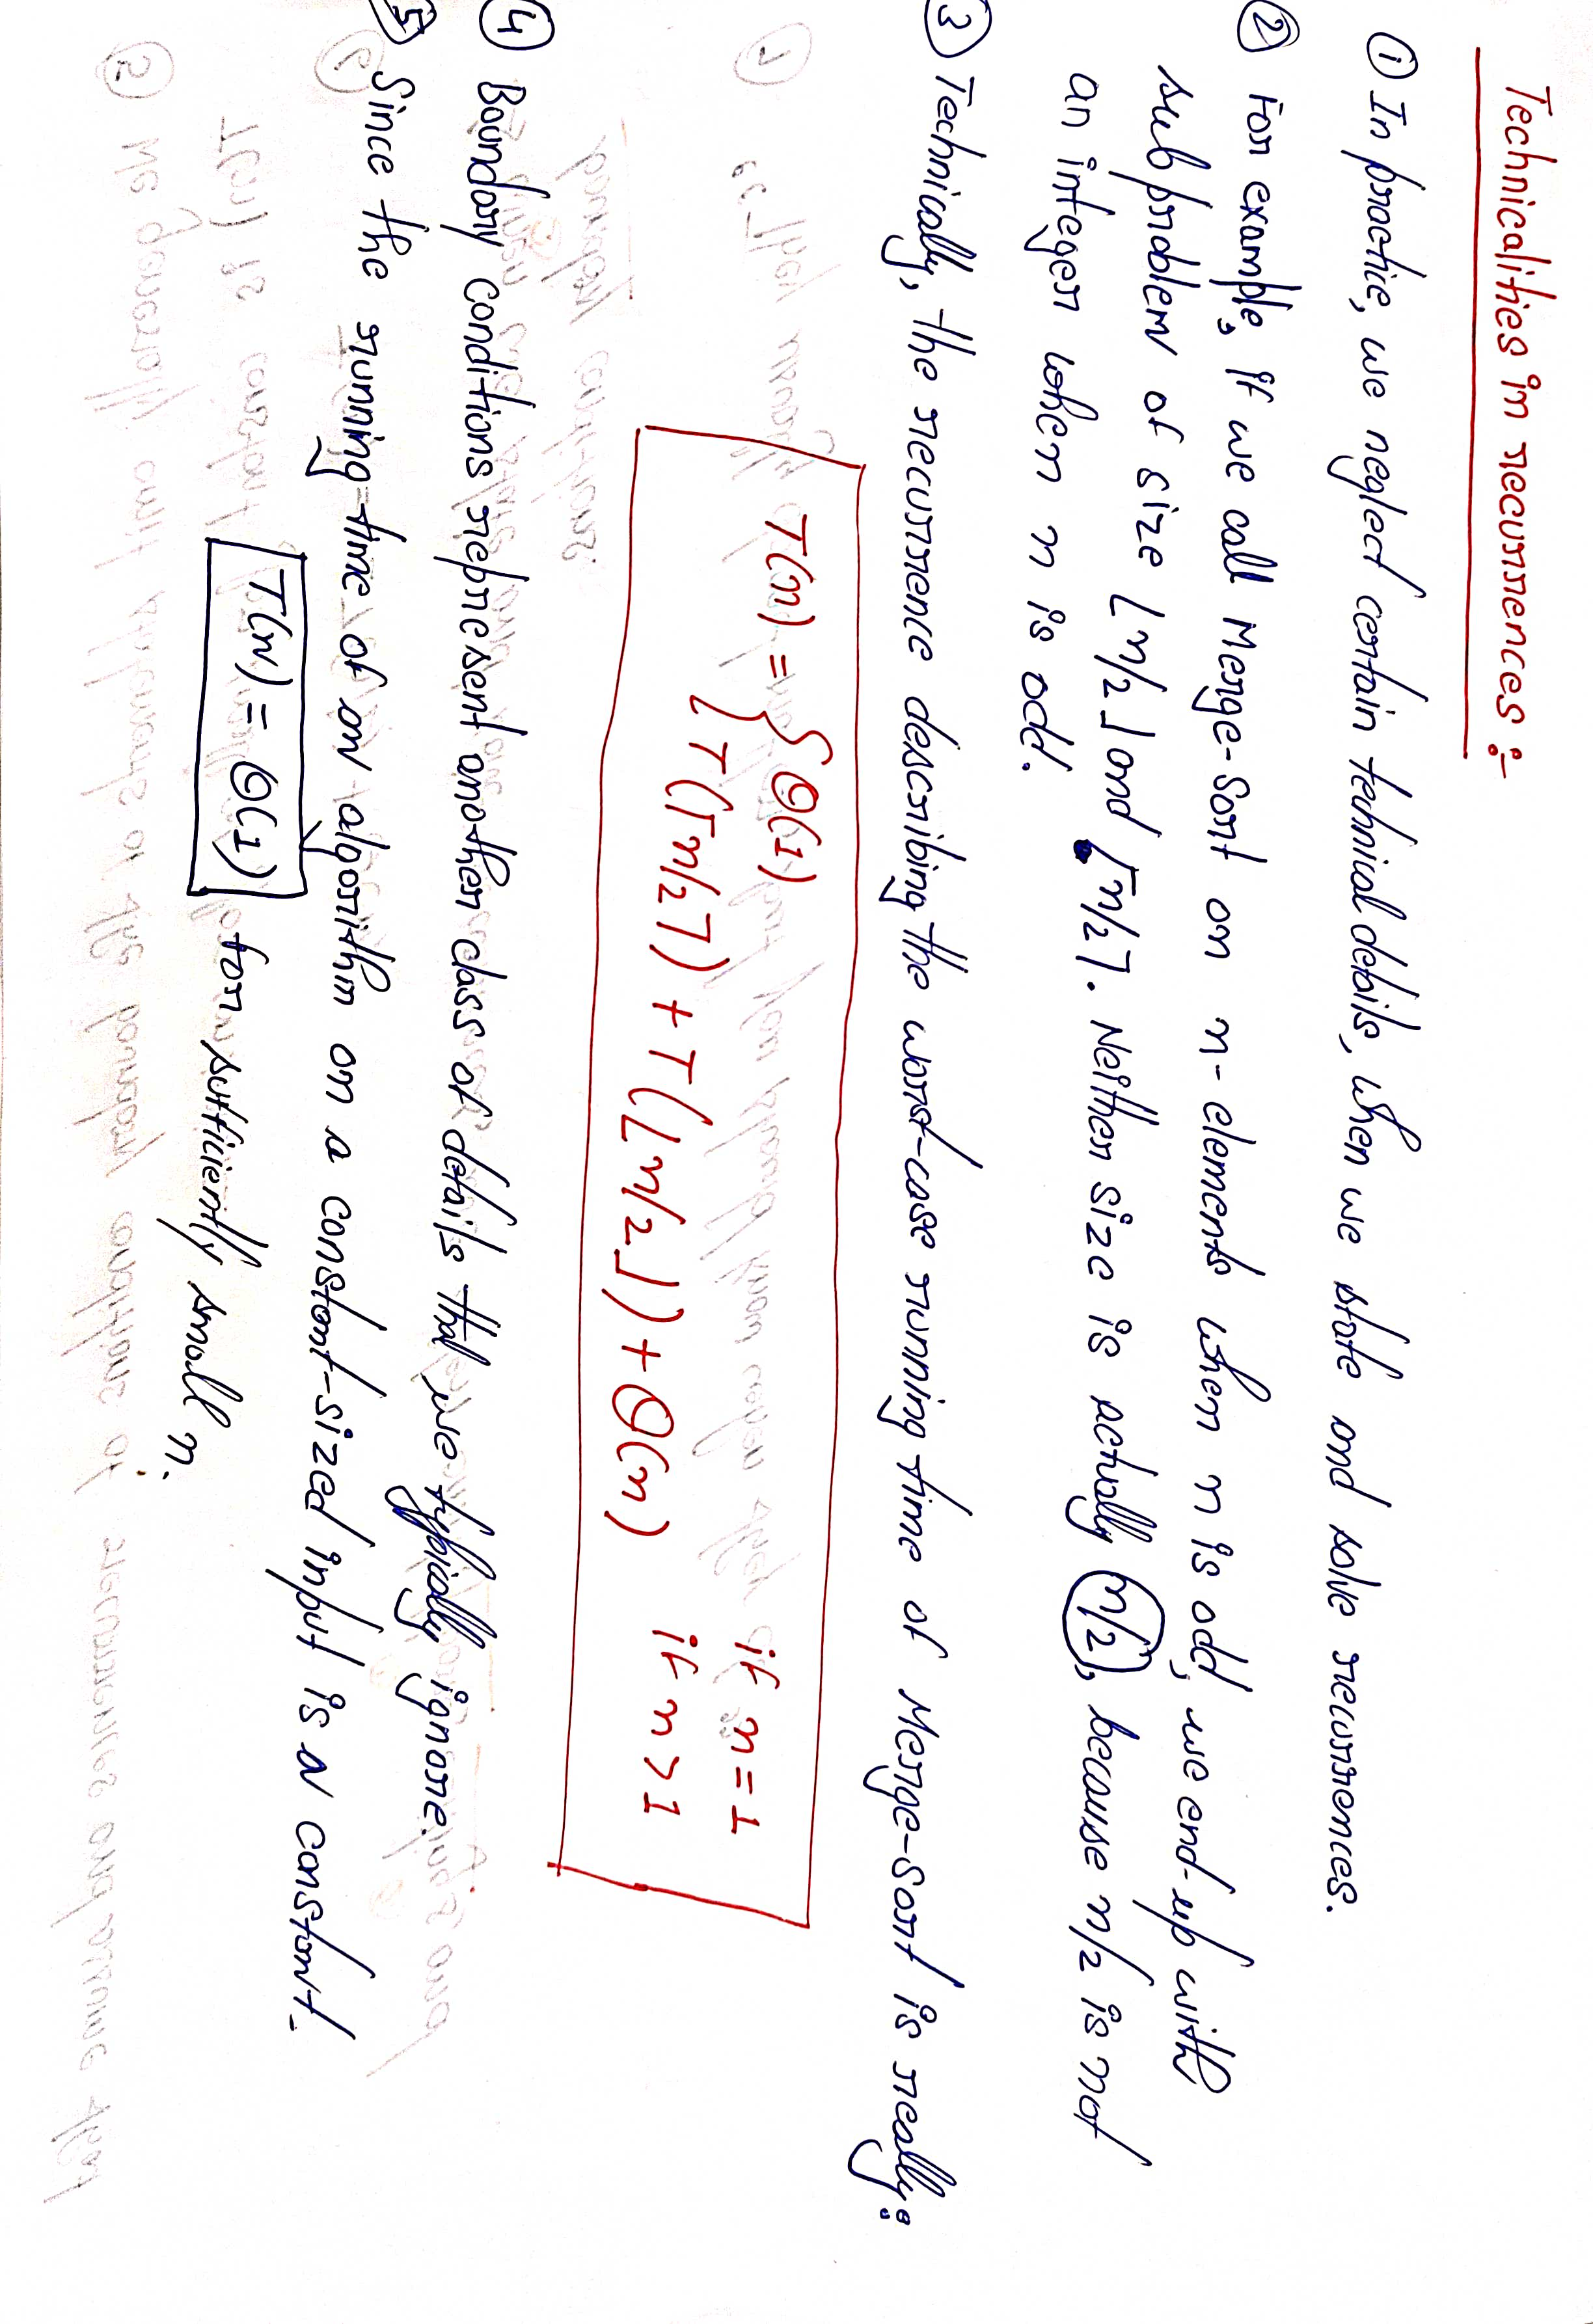 Technicalities in recurrences :-
① In practie, we neglect certain technical details, when we state and solve recurrences.
② For example, if we call Merge-Sort on n-elements when n is odd, we end-up with
subproblem of size ⌊n/2⌋ and ⌈n/2⌉. Neither size is actually n/2, because n/2 is not
an integer when n is odd.
③ Technically, the recurrence describing the worst-case running time of Merge-Sort is really:
T(n) = { Θ(1) if n=1
T(⌈n/2⌉) + T(⌊n/2⌋) + Θ(n) if n>1
④ Boundary conditions represent another class of details that we typically ignore.
⑤ Since the running-time of an algorithm on a constant-sized input is a constant.
T(n) = Θ(1) for sufficiently small n.